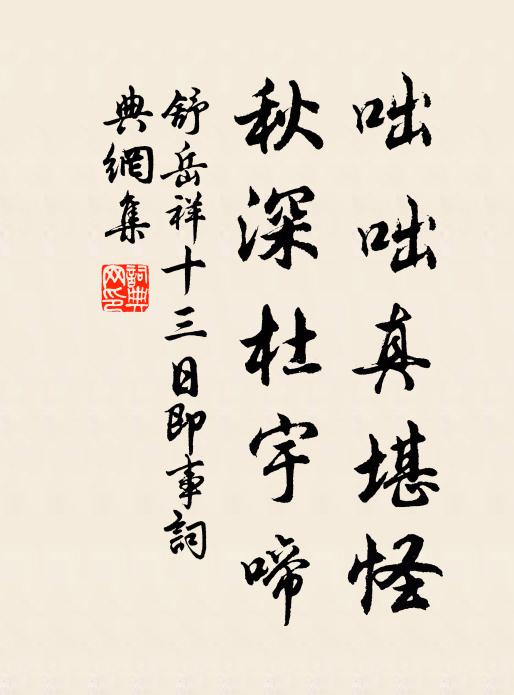 咄咄真堪怪
秋深杜宇啼
舒岳祥十三日即事詞
典網集
詞典网印